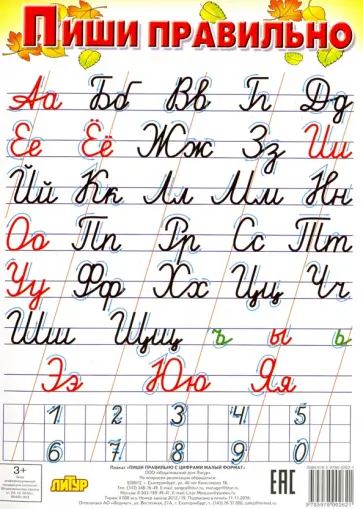 Пиши правильно
Аа Бб Вв Гг Дд
Ее Ёё Жж Зз Ии
Йй Кк Лл Мм Нн
Оо Пп Рр Сс Тт
Уу Фф Хх Цц Чч
Шш Щщ ъ ы ь
Ээ Юю Яя
1 2 3 4 5
6 7 8 9 0
3+
ЛИТУР
Плакат «ПИШИ ПРАВИЛЬНО С ЦИФРАМИ МАЛЫЙ ФОРМАТ»
ООО «Издательский дом Литур»
По вопросам реализации обращаться:
EAC
9785978 002621